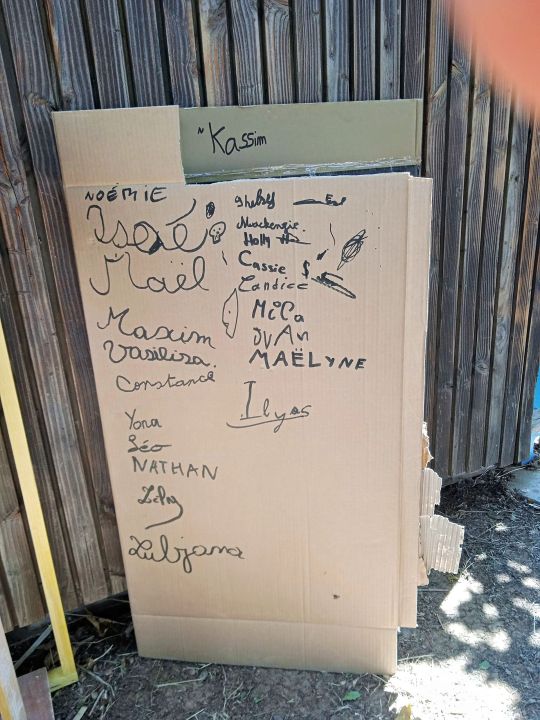 Kassim
NOÉMIE
Isaé
Maël
Maxim
Vasilisa
Constance
Yona
Léo
NATHAN
Lubjana
Mackenzie
Holly
Cassie $
Candice
MiLa
MAËLYNE
Ilyas